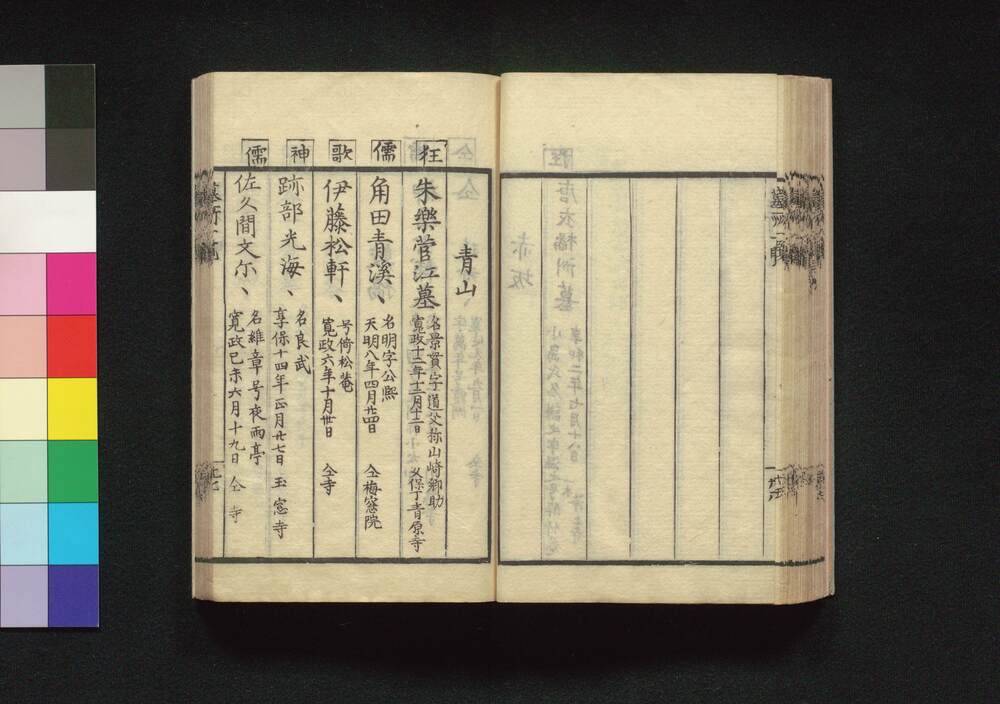 青山
狂
朱樂菅江墓
名景貫字道父称山崎郷助
寛政十二年十二月十二日 久保丁青原寺
儒
角田青溪、
名明字公熙
天明八年四月廿四日 仝梅窓院
歌
伊藤松軒、
号倚松菴
寛政六年十月廿日 仝寺
神
跡部光海、
名良武
享保十四年正月廿七日 玉窓寺
儒
佐久間文尔、
名維章号夜雨亭
寛政己未六月十九日 仝寺